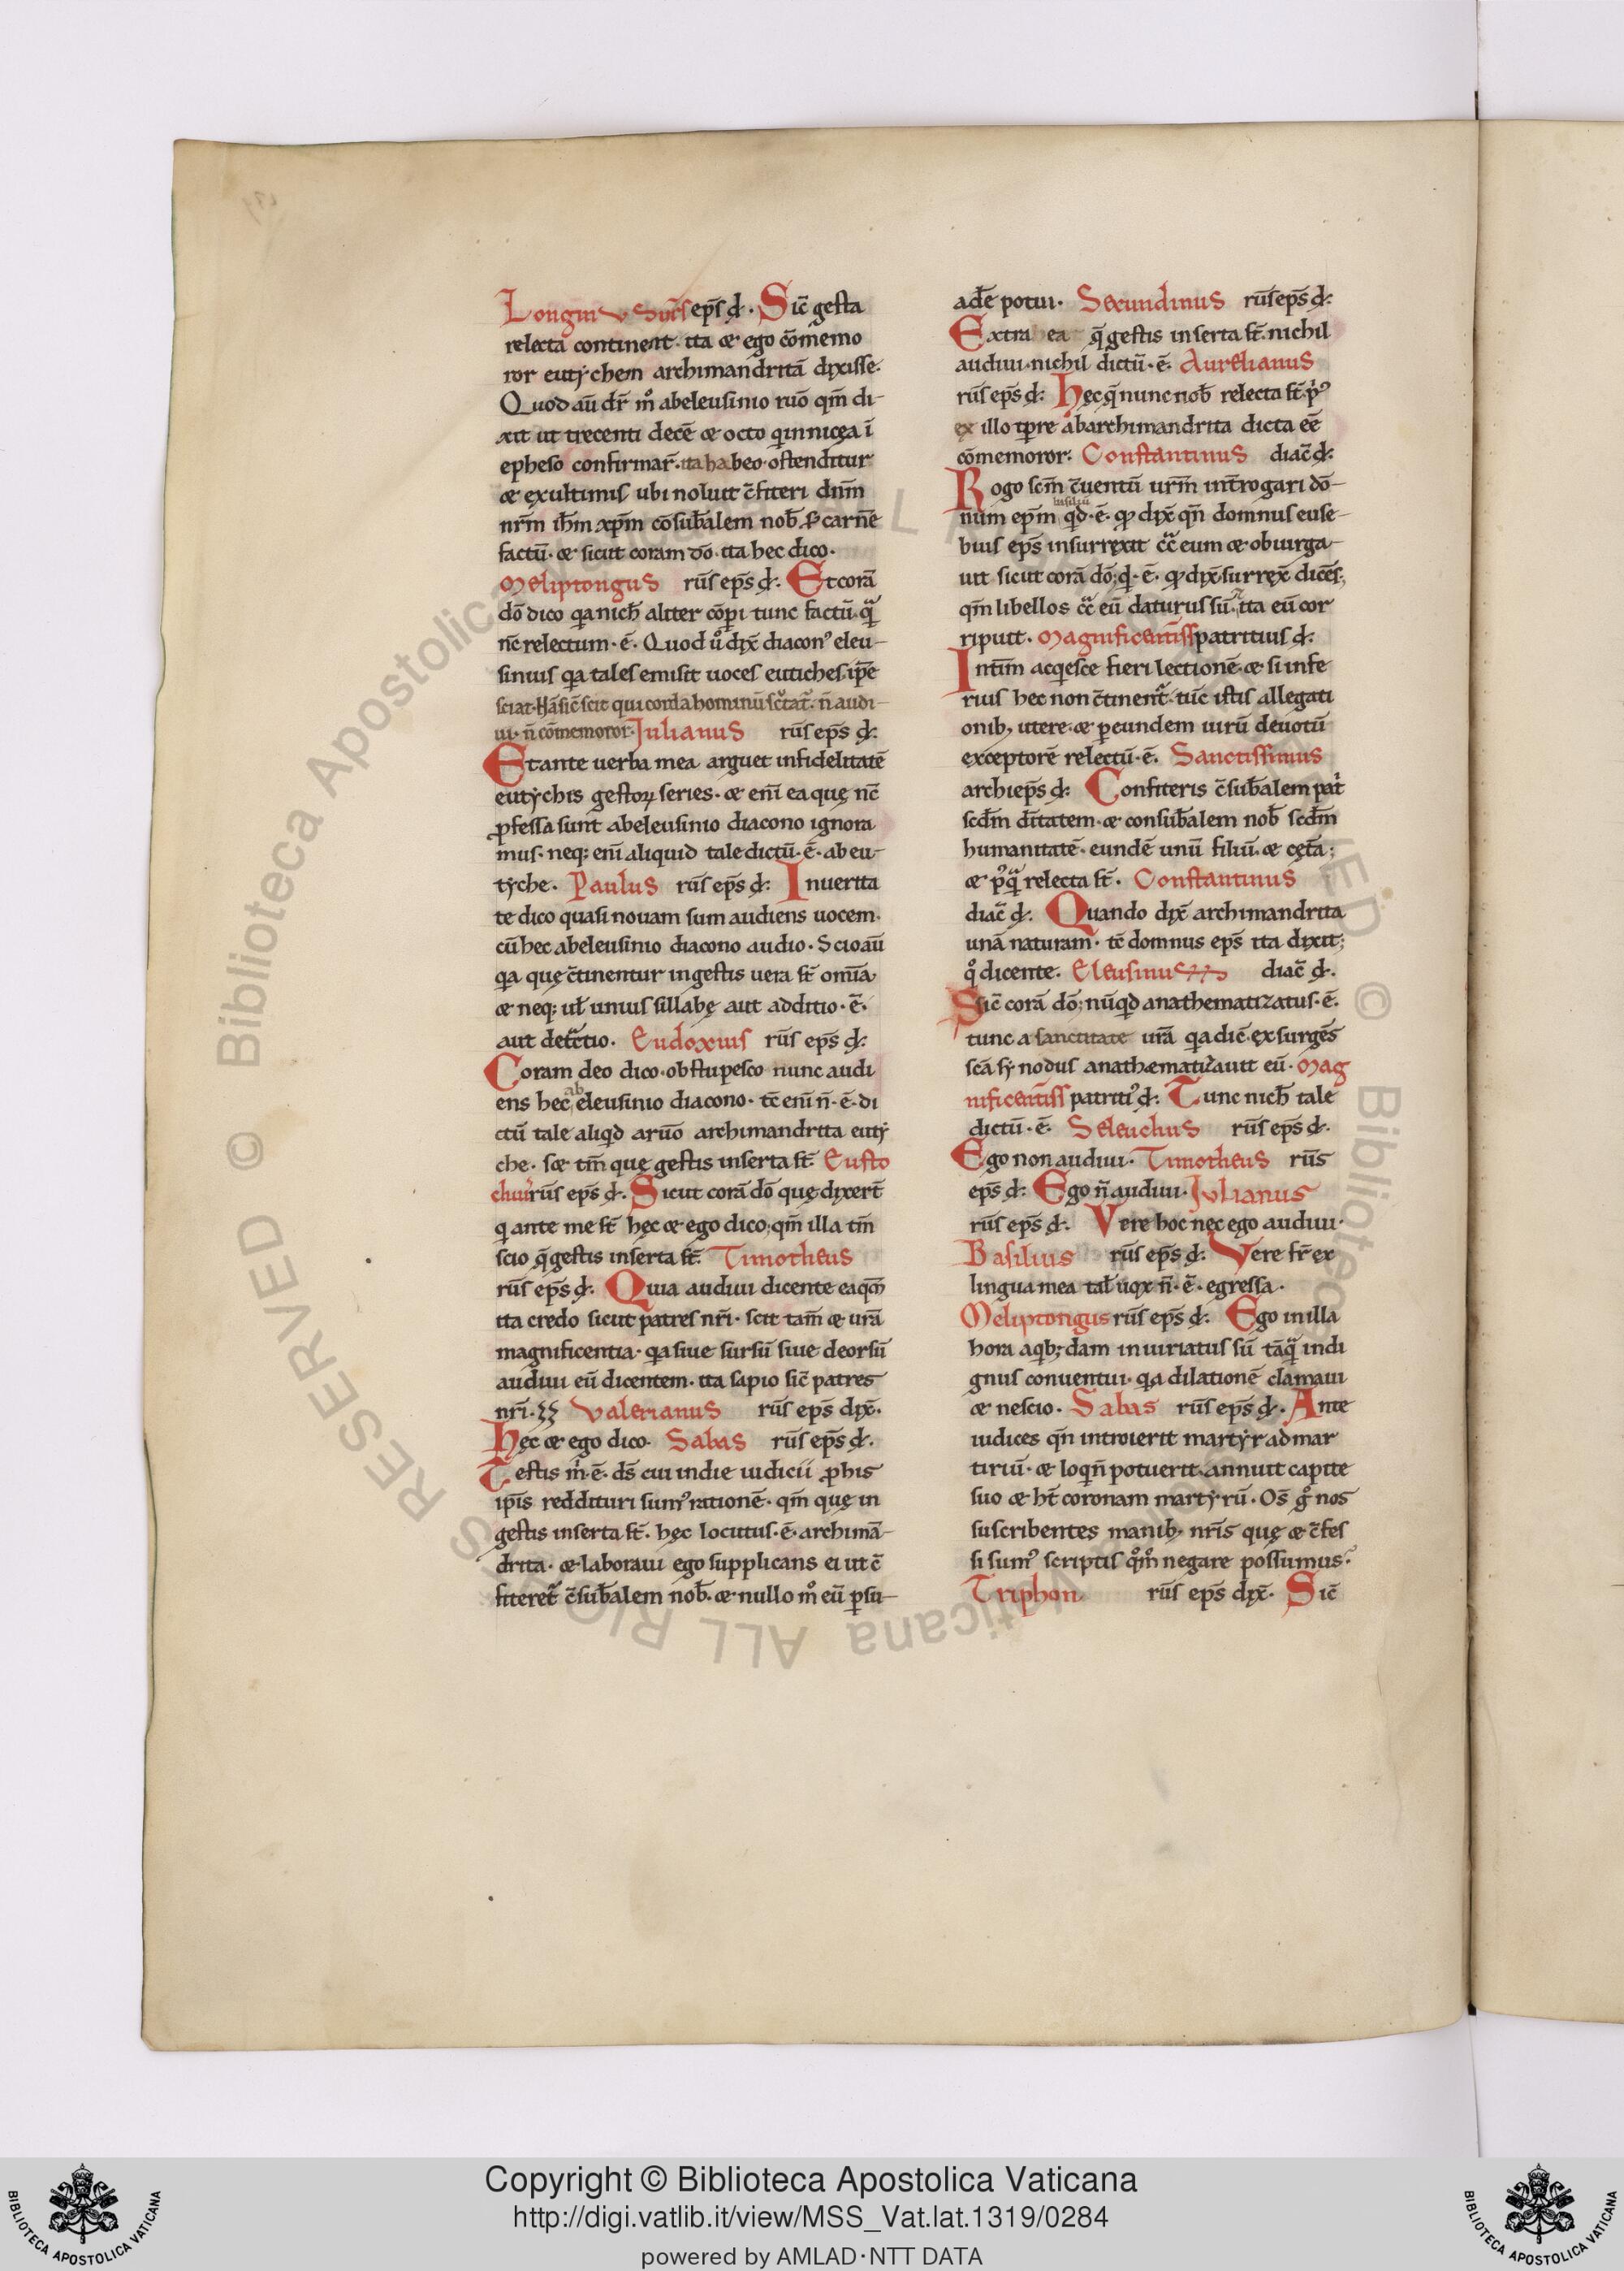 Longinus rūs eps̄ đ. Sic̄ gesta
relecta continent. ita & ego c̄omemo
ror eutychem archimandritā dixisse.
Quod aū dr̄ m̊ ab eleusinio ruō qm̄ di-
xit ut trecenti decē & octo qui nicęa ī
epheso confirmar̄. ita habeo. ostenditur
& ex ultimis ubi noluit c̄fiteri dnm̄
nr̄m ih̄m xp̄m cōsub̄alem nob̄ s̄c carnē
factū. & sicut coram dō. ita hec dico.
Meliptongus rūs eps̄ đ. Et corā
dō dico qia nich̄ aliter cōperi tunc factū. qua
nc̄ relectum. ē. Quod ů dix̄ diacon' eleu-
sinius qia tales emisit uoces eutiches. ip̄e
sciat. Nā sic̄ scit qui corda hominū sc̄tat̄. n̄ audi-
ui. n̄ cōmemoror. Julianus rūs eps̄ đ.
Et ante uerba mea arguet infidelitatē
eutychis gestoꝝ series. & enī ea quę nc̄
ꝓfessa sunt ab eleusinio diacono ignora
mus. neq; enī aliquid tale dictū. ē. ab eu-
tyche. Paulus rūs eps̄ đ. In uerita
te dico quasi nouam sum audiens uocem.
cū hec ab eleusinio diacono audio. Scio aū
qia quę c̄tinentur in gestis uera st̄ omīa
& neq; ul̄ unius sillabę aut additio. ē.
aut det̄ctio. Eudoxius rūs eps̄ đ.
Coram deo dico. obstupesco nunc audi
ens hec ab eleusinio diacono. tc̄ enī n̄. ē. di
ctū tale aliqd a ruō archimandrita euty
che. s& tm̄ que gestis inserta st̄. Eusto
chius rūs eps̄ đ. Sicut corā dō quę dixer̄t
qi ante me st̄ hęc & ego dico. qm̄ illa tm̄
scio q̄ gestis inserta st̄. Timotheus
rūs eps̄ đ. Quia audiui dicente ea qm̄
ita credo sicut patres nr̄i. scit tam̄ & urā
magnificentia. qia siue sursū siue deorsū
audiui eū dicentem. ita sapio sic̄ patres
nr̄i. Valerianus rūs eps̄ dix̄.
Hęc & ego dico. Sabas rūs eps̄ đ.
Testis m̊. ē. ds̄ cui in die iudicii ꝓ his
ip̄is reddituri sum' rationē. qm̄ quę in
gestis inserta st̄. hęc locutus. ē. archimā-
drita. & laboraui ego supplicans ei ut c̄
fiteret̄ c̄sub̄alem nob̄. & nullo m̊ eū ꝑsu-
adē potui. Secundinus rūs eps̄ đ.
Extra ea q̄ gestis inserta st̄. nichil
audiui. nichil dictū. ē. Aurelianus
rūs eps̄ đ. Hęc q̄ nunc nob̄ relecta st̄. p'
ex illo tp̄re ab archimandrita dicta eē
cōmemoror. Constantinus diac̄ đ.
Rogo sc̄m c̄uentū urm̄ int̄rogari dō-
num epm̄ basiliū qd. ē. qd dix̄ qn̄ domnus euse-
bius eps̄ insurrexit c̄c eum & obiurga-
uit sicut corā dō; qd. ē. qd dix̄. surrex̄ dicēs;
qm̄ libellos c̄c eū daturus sū. ita eū cor
ripuit. Magnificentiss̄ patritius đ.
Intim̄ acqesce fieri lectionē. & si infe
rius hec non c̄tinent̄. tūc istis allegati
onib, utere. & ꝑ eundem uirū deuotū
exceptorē relectū. ē. Sanctissimus
archieps̄ đ. Confiteris c̄sub̄alem patri
scdm̄ dītatem. & consub̄alem nob̄ scdm̄
humanitatē. eundē unū filiū. & cęta;
& p'qua relecta st̄. Constantinus
diac̄ đ. Quando dix̄ archimandrita
unā naturam. tc̄ domnus eps̄ ita dixit;
q̊ dicente. Eleusinus diac̄ đ.
Sic̄ corā dō; nūqd anathematizatus. ē.
tunc a sanctitate urā qia dic̄. exsurgēs
scā synodus anath&matizauit eū. Mag
nificentiss̄ patriti' đ. Tunc nich̄ tale
dictū. ē. Seleuchus rūs eps̄ đ.
Ego non audiui. Timotheus rūs
eps̄ đ. Ego n̄ audiui. Julianus
rūs eps̄ đ. Vere hoc nęc ego audiui.
Basilius rūs eps̄ đ. Vere fr̄ ex
lingua mea tal̄ uox n̄. ē. egressa.
Meliptongus rūs eps̄ đ. Ego in illa
hora a qib;dam iniuriatus sū tāqua indi
gnus conuentui. qia dilationē clamaui
& nescio. Sabas rūs eps̄ đ. Ante
iudices qn̄ introierit martyr ad mar
tiriū. & loqi n̄ potuerit. annuit capite
suo & ht̄ coronam martyrū. Os̄ g̊ nos
suscribentes manib, nr̄is quę & c̄fes
si sum' scriptis qm̊ negare possumus?
Triphon rūs eps̄ dix̄. Sic̄
Copyright © Biblioteca Apostolica Vaticana
http://digi.vatlib.it/view/MSS_Vat.lat.1319/0284
powered by AMLAD·NTT DATA